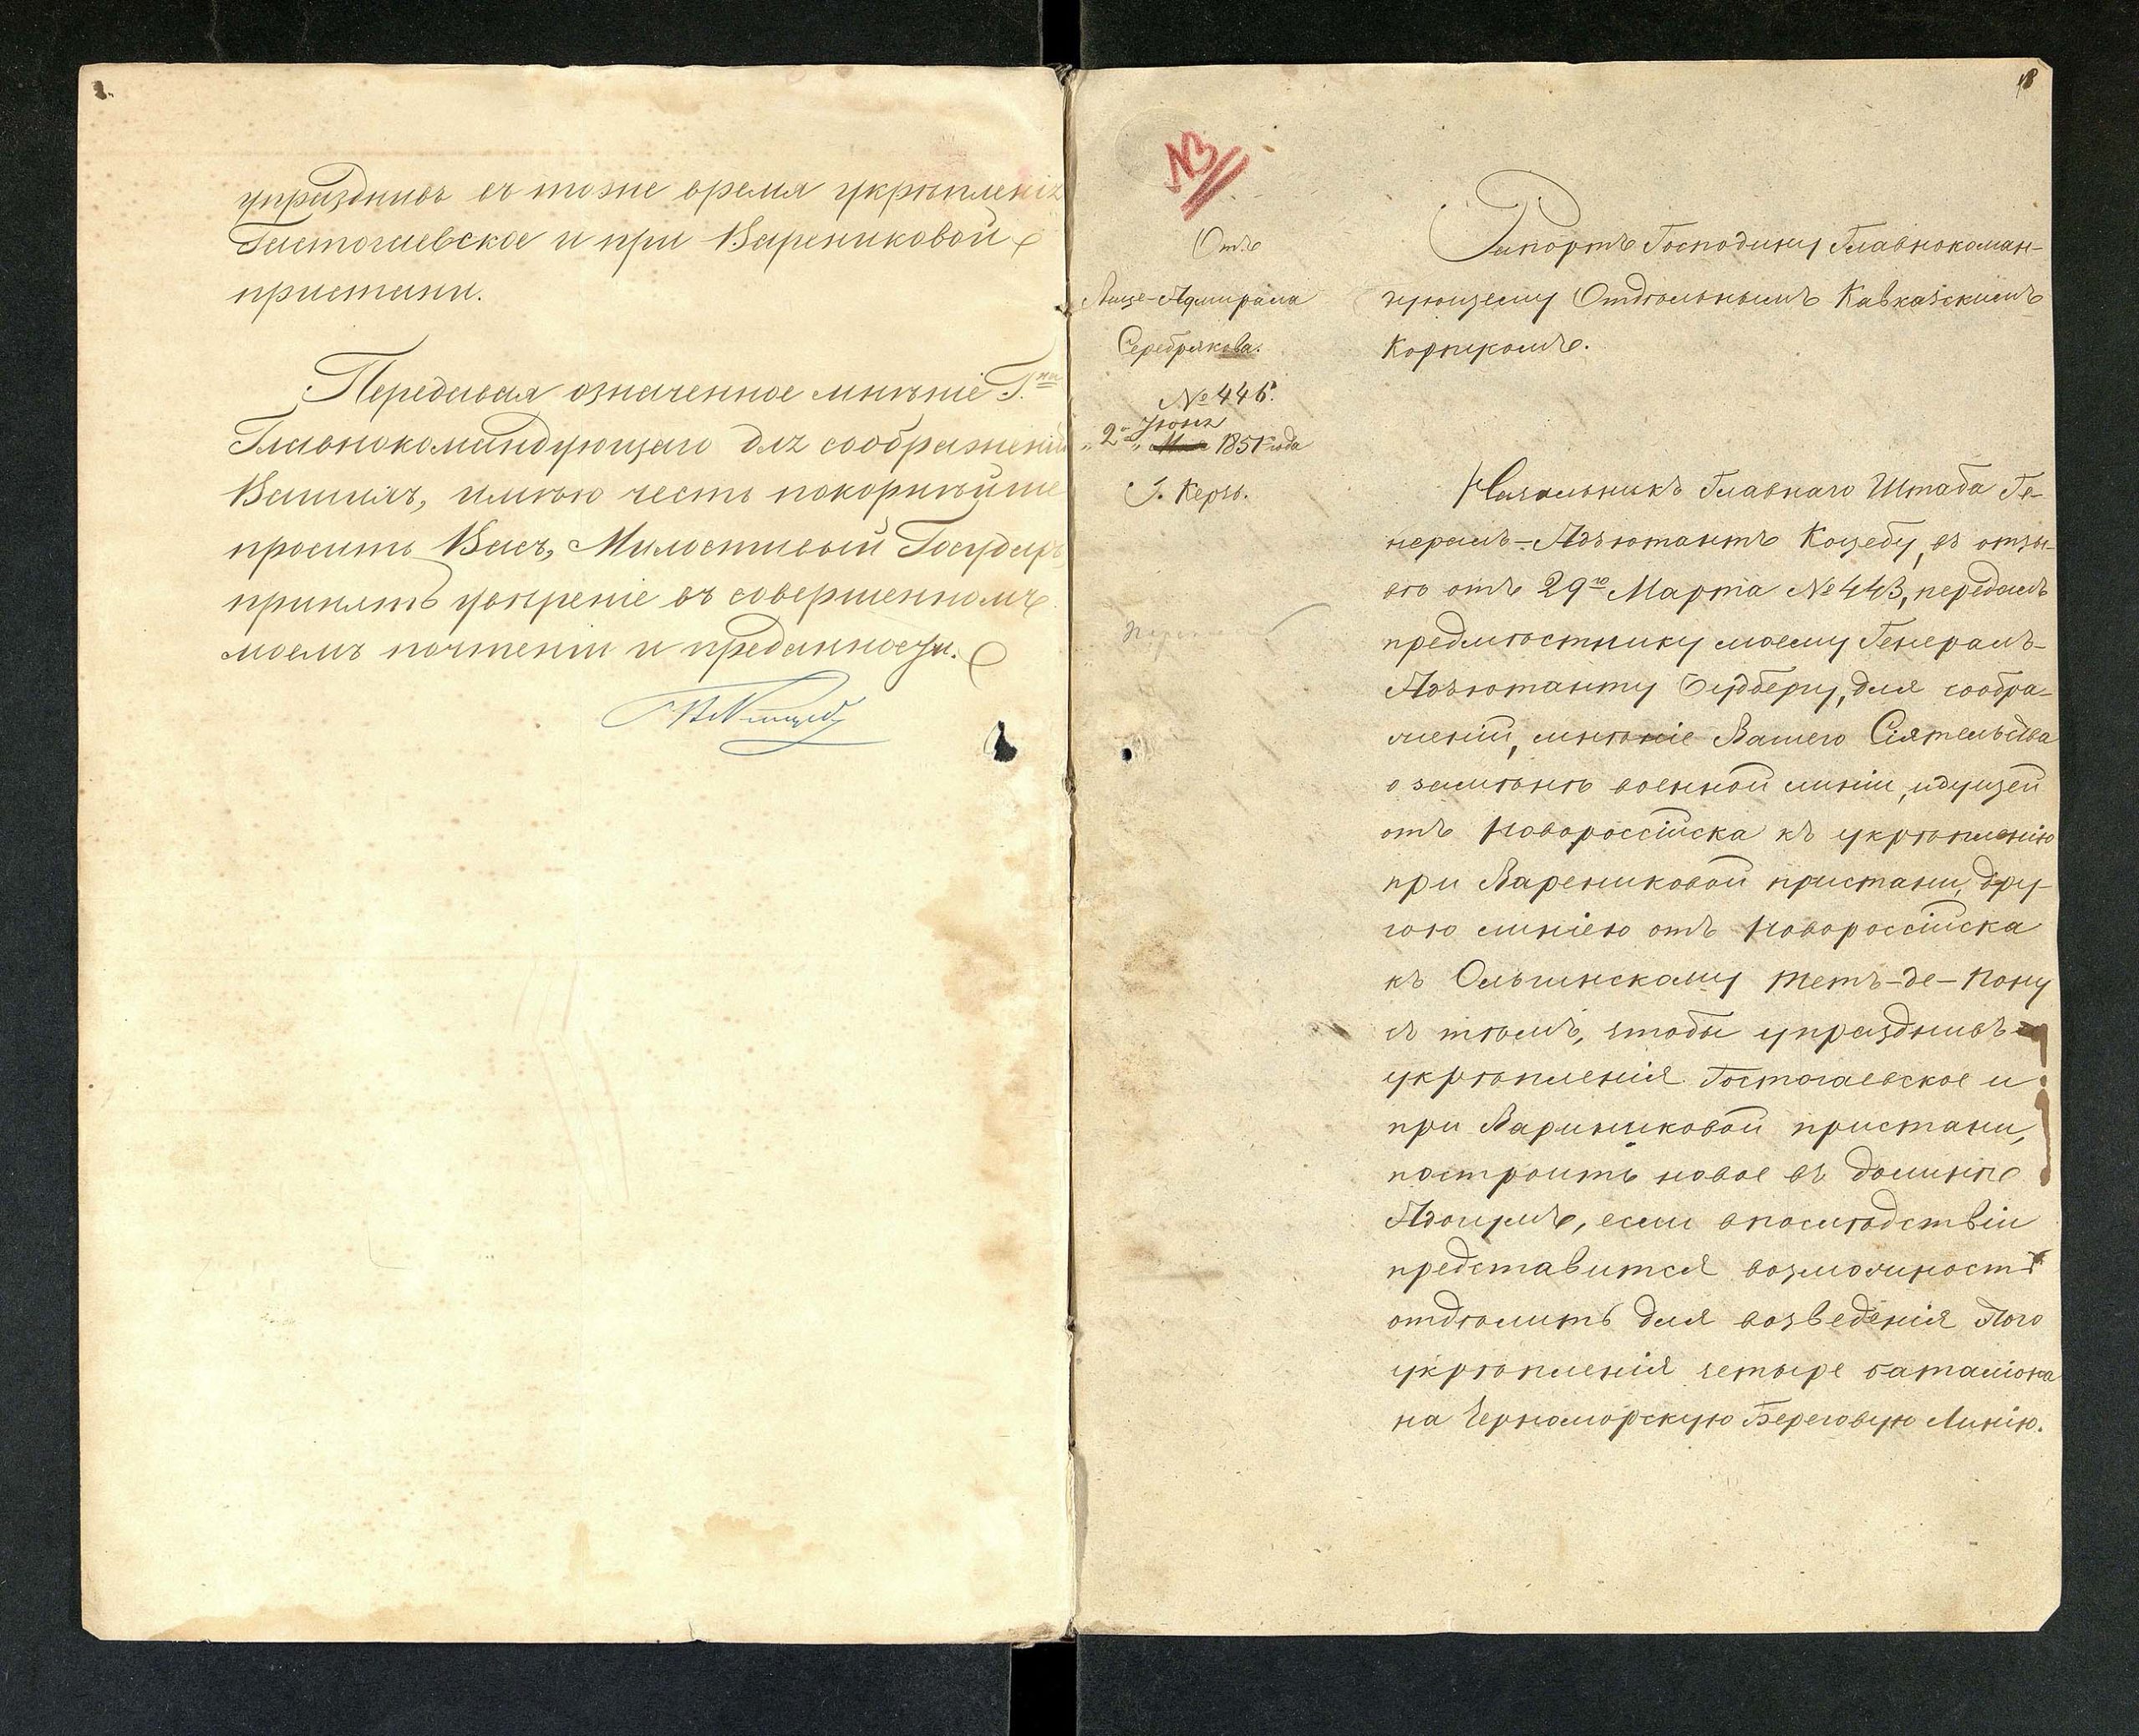 упразднивъ въ тоже время укрѣпленія
Гастогаевское и при Варениковой
пристани.
Передавая означенное мнѣніе Г.на
Главнокомандующаго для соображеній
Вашихъ, имѣю честь покорнѣйше
просить Васъ, Милостивый Государь,
принять увѣреніе въ совершенномъ
моемъ почтеніи и преданности.
№3
Отъ
Вице-Адмирала
Серебрякова.
№ 446.
Іюня
"2го" 1851 года
Г. Керчь.
Рапортъ Господину Главнокоман-
дующему Отдѣльнымъ Кавказскимъ
Корпусомъ.
Начальникъ Главнаго Штаба Ге-
нералъ-Адъютантъ Коцебу, въ отзы-
вѣ отъ 29го Марта № 443, передалъ
предмѣстнику моему Генералъ-
Адъютанту Будбергу, для сообра-
женій, мнѣніе Вашего Сіятельства
о замѣнѣ военной линіи, идущей
отъ Новороссійска къ укрѣпленію
при Варениковой пристани, дру-
гою линіею отъ Новороссійска
къ Ольгинскому тетъ-де-пону
съ тѣмъ, чтобы упразднивъ
укрѣпленія Гостогаевское и
при Вариниковой пристани,
построить новое въ долинѣ
Адагумъ, если впослѣдствіи
представится возможность
отдѣлить для возведенія этого
укрѣпленія четыре баталіона
на Черноморскую Береговую Линію.